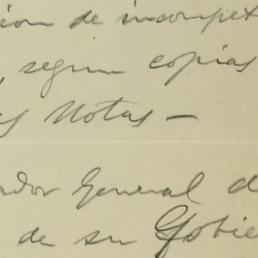 sion de incompet
, segun copias
es Notas —
ador General d
de su Gobie